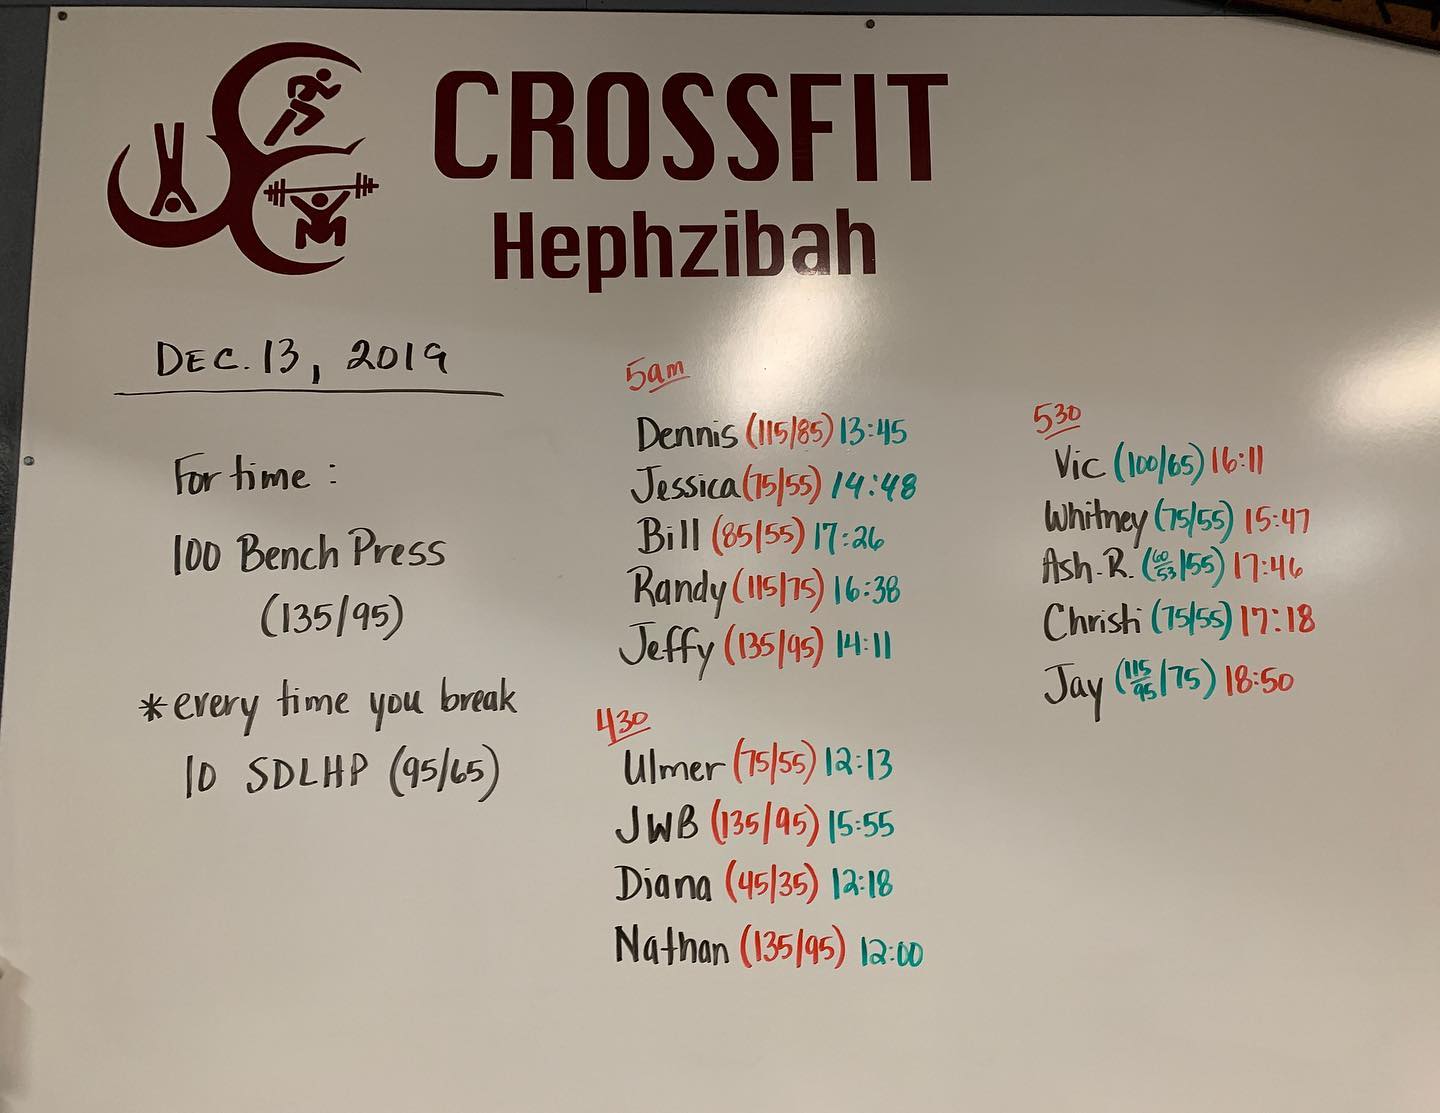 CROSSFIT
Hephzibah
DEC. 13, 2019
For time :
100 Bench Press
(135/95)
*every time you break
10 SDLHP (95/65)
5am
Dennis (115/85) 13:45
Jessica (75/55) 14:48
Bill (85/55) 17:26
Randy (115/75) 16:38
Jeffy (135/95) 14:11
430
Ulmer (75/55) 12:13
JWB (135/95) 15:55
Diana (45/35) 12:18
Nathan (135/95) 12:00
530
Vic (100/65) 16:11
Whitney (75/55) 15:47
Ash.R. (60/53/55) 17:46
Christi (75/55) 17:18
Jay (115/95/75) 18:50